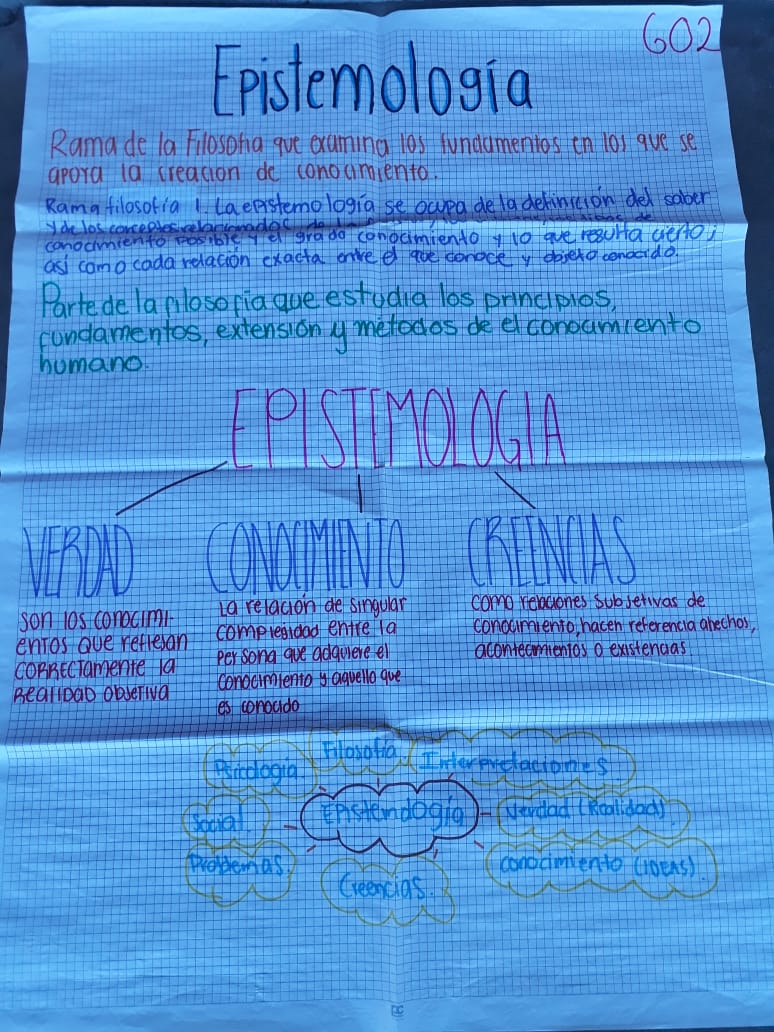 602
Epistemología
Rama de la Filosofia que examina los fundamentos en los que se
apoya la creacion de conocimiento.
Rama filosofía 1. La epistemología se ocupa de la definición del saber
y de los conceptos relacionados de
conocimiento posible y el grado conocimiento y lo que resulta cierto;
así como cada relación exacta entre el que conoce y objeto conocido.
Parte de la filosofia que estudia los principios,
fundamentos, extensión y métodos de el conocimiento
humano.
EPISTEMOLOGIA
VERDAD CONOCIMIENTO CREENCIAS
son los conocimi-
entos que reflejan
correctamente la
Realidad objetiva
La relación de singular
complejidad entre la
persona que adquiere el
conocimiento y aquello que
es conocido
como relaciones subjetivas de
conocimiento, hacen referencia ahechos,
acontecimientos o existencias.
Psicología Filosofía Interpretaciones
Social Epistemología Verdad (Realidad)
Problemas Creencias. conocimiento (IDEAS)